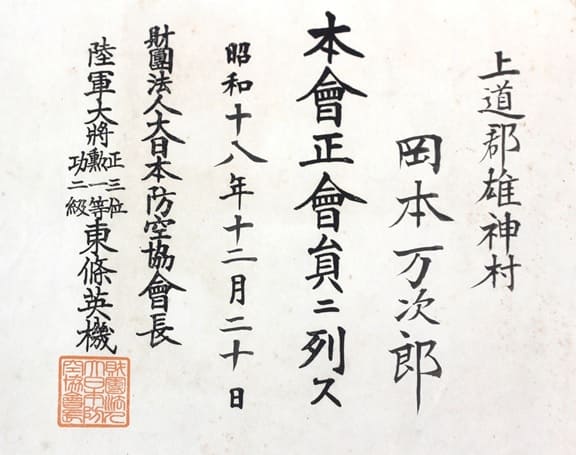 上道郡雄神村
岡本万次郎
本會正會員ニ列ス
昭和十八年十二月二十日
財團法人大日本防空協會長
陸軍大將正三位勲一等功二級東條英機
財團法人
大日本防
空協會長